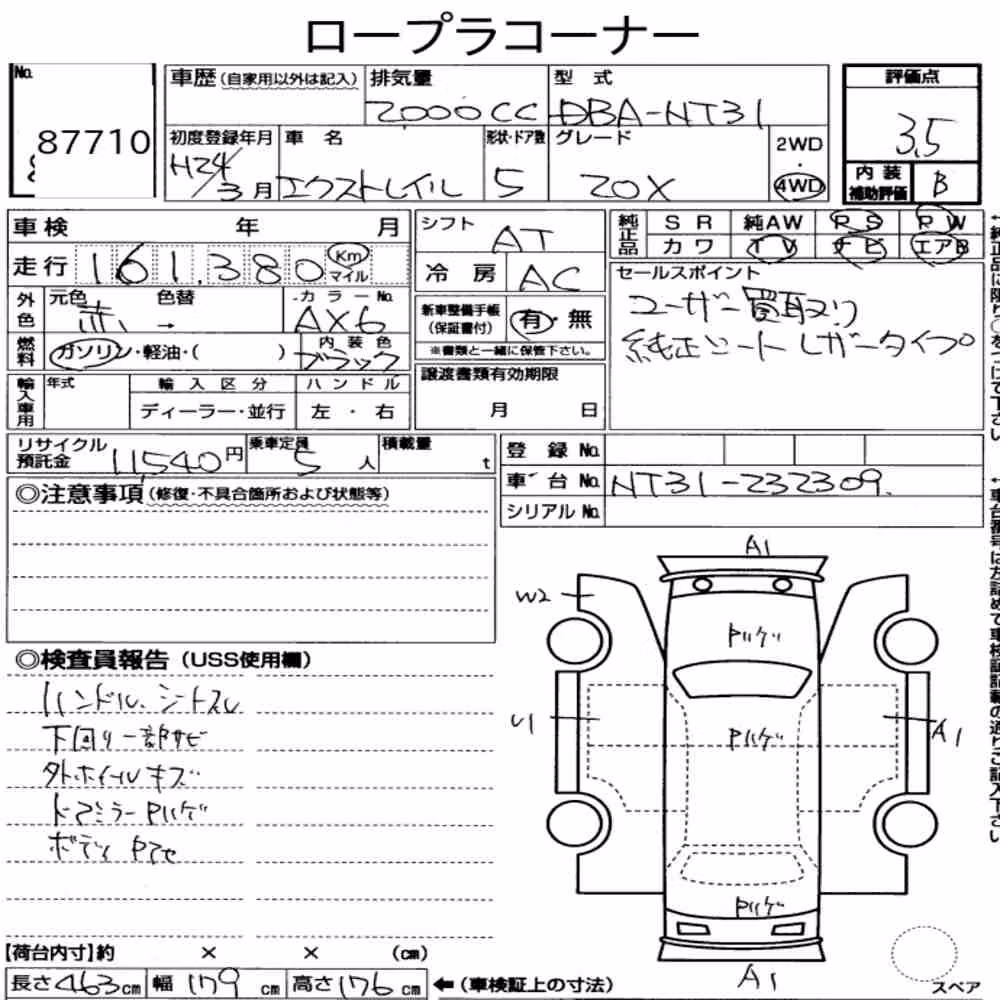 ロープラコーナー
No. 87710
車歴(自家用以外は記入) 排気量 2000cc 型式 DBA-NT31
初度登録年月 H24/3月 車名 エクストレイル 形状・ドア数 5 グレード 20X 2WD・4WD
評価点 3.5
内装補助評価 B
車検 年 月
走行 161,380 Km マイル
外色 元色 赤 色替 → カラーNo. AX6
燃料 ガソリン・軽油・( ) 内装色 ブラック
輸入車用 年式 輸入区分 ディーラー・並行 ハンドル 左・右
シフト AT
冷房 AC
新車整備手帳(保証書付) 有・無
※書類と一緒に保管下さい。
譲渡書類有効期限
月 日
純正品 SR 純AW PS PW
カワ TV ナビ エアB
セールスポイント
ユーザー買取り
純正シートレザータイプ。
リサイクル預託金 11,540円 乗車定員 5人 積載量 t
登録No.
車台No. NT31-232309.
シリアルNo.
◎注意事項(修復・不具合箇所および状態等)
◎検査員報告(USS使用欄)
ハンドル、シートスレ
下回り一部サビ
外ホイールキズ
ドアミラーPハゲ
ボディPアセ
A1
W2
Pハゲ
U1
Pハゲ
A1
Pハゲ
A1
スペア
【荷台内寸】約 × × (cm)
長さ463cm 幅179cm 高さ176cm ←(車検証上の寸法)